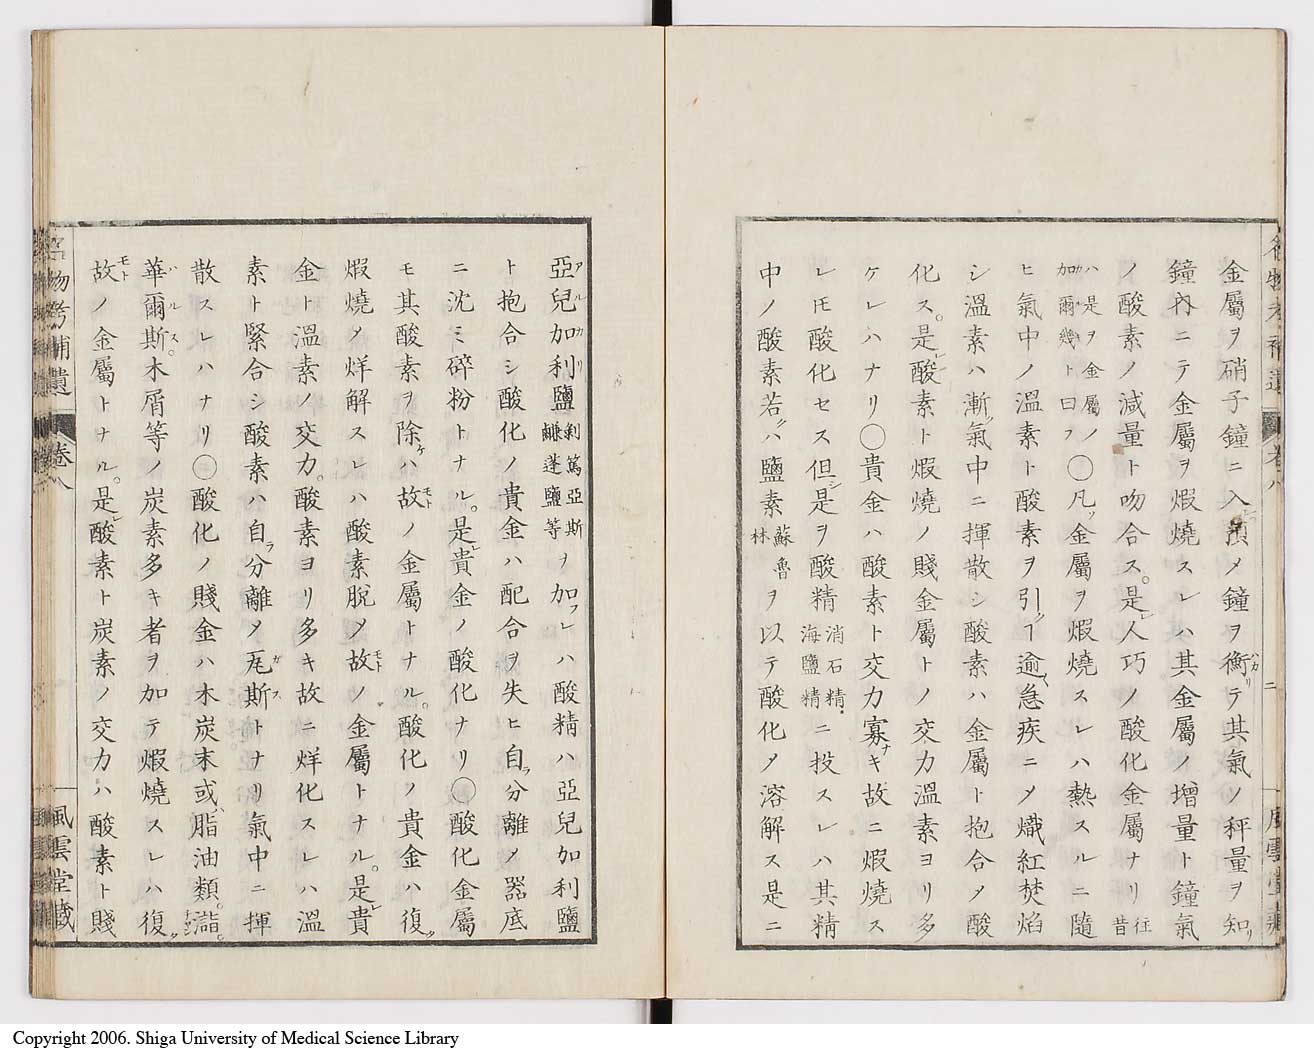 金屬ヲ硝子鐘ニ入預メ鐘ヲ衡リテ其氣ノ秤量ヲ知リ
鐘內ニテ金屬ヲ煆燒スレハ其金屬ノ增量ト鐘氣
ノ酸素ノ減量ト吻合ス。是レ人巧ノ酸化金屬ナリ往昔
ハ是ヲ金屬ノ加爾幾ト曰フ〇凡ソ金屬ヲ煆燒スレハ熱スルニ隨
ヒ氣中ノ溫素ト酸素ヲ引ヿ逾〻急疾ニメ熾紅焚焰
シ溫素ハ漸〻氣中ニ揮散シ酸素ハ金屬ト抱合メ酸
化ス。是レ酸素ト煆燒ノ賤金屬トノ交力溫素ヨリ多
ケレハナリ〇貴金ハ酸素ト交力寡キ故ニ煆燒ス
レモ酸化セス但シ是ヲ酸精消石精海鹽精ニ投スレハ其精
中ノ酸素若クハ鹽素蘇魯林ヲ以テ酸化メ溶解ス是ニ
亞兒加利鹽剝篤亞斯鹻蓬鹽等ヲ加フレハ酸精ハ亞兒加利鹽
ト抱合シ酸化ノ貴金ハ配合ヲ失ヒ自ラ分離メ器底
ニ沈ミ碎粉トナル。是レ貴金ノ酸化ナリ〇酸化金屬
モ其酸素ヲ除ケハ故ノ金屬トナル。酸化ノ貴金ハ復〻
煆燒メ烊解スレハ酸素脫メ故ノ金屬トナル。是レ貴
金ト溫素ノ交力。酸素ヨリ多キ故ニ烊化スレハ溫
素ト緊合シ酸素ハ自ラ分離メ瓦斯トナリ氣中ニ揮
散スレハナリ〇酸化ノ賤金ハ木炭末或ハ脂油類。瀝。
華爾斯。木屑等ノ炭素多キ者ヲ加テ煆燒スレハ復〻
故ノ金屬トナル。是レ酸素ト炭素ノ交力ハ酸素ト賤
物考補遺
卷八
二
風雲堂藏
Copyright 2006. Shiga University of Medical Science Library